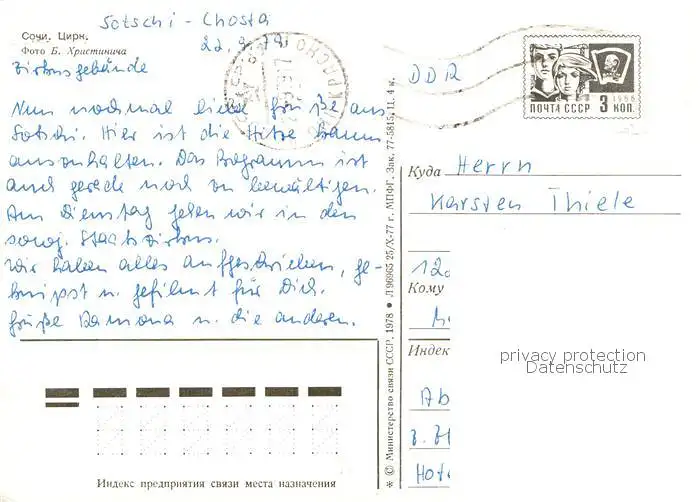 Sotschi - Chosta
Сочи. Цирк.
22.9.79
Фото Б. Христинича
Zirkusgebäude
Nun nochmal liebe Grüße aus
Sotschi. Hier ist die Hitze kaum
auszuhalten. Das Programm ist
auch gerade noch zu bewältigen.
Am Dienstag gehen wir in den
sowj. Staatszirkus.
Wir haben alles aufgeschrieben, ge-
knipst u. gefilmt für Dich.
Grüße Ramona u. die anderen.
Индекс предприятия связи места назначения
* © Министерство связи СССР, 1978 • Л 96965 25/X-77 г. МПФГ. Зак. 77-5815, II. 4 к.
DDR
1966
ПОЧТА СССР 3 КОП.
Куда Herrn
Karsten Thiele
Кому
Индек
privacy protection
Datenschutz
Ab
z. H
Hot